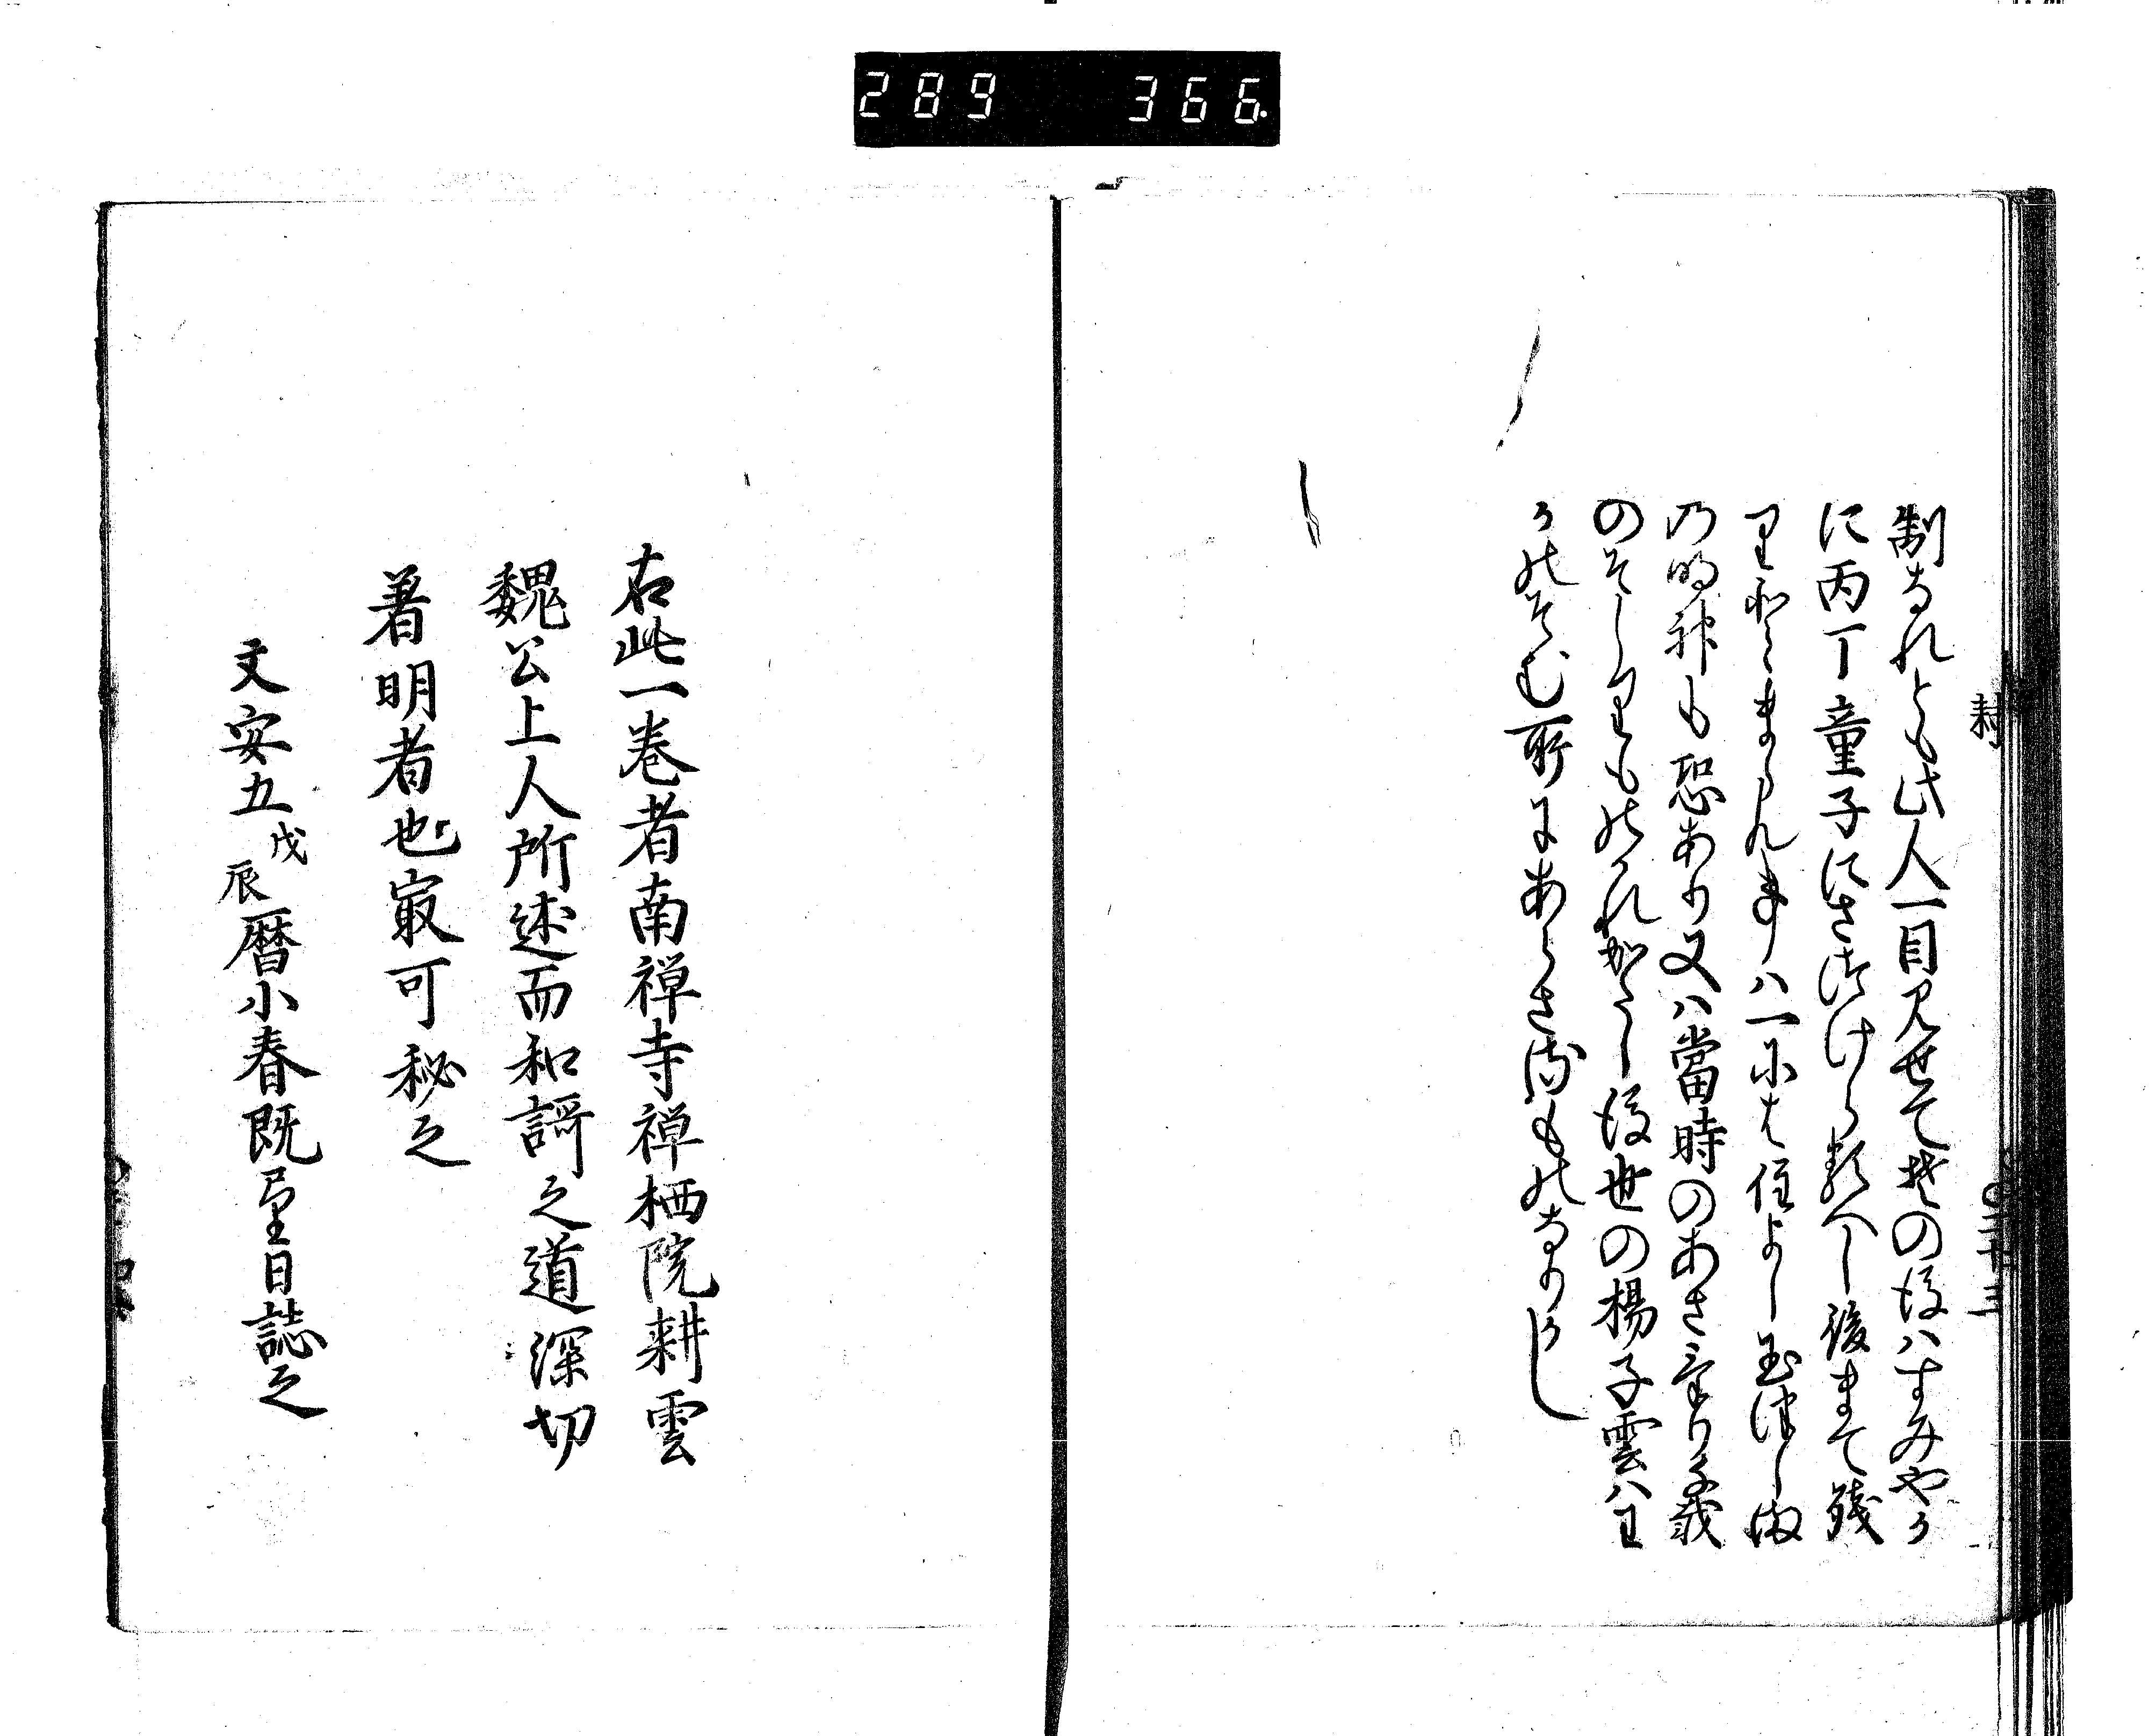 289 366.
制なれとも此人一目見せてその後ハすみやか
に丙丁童子にさつけらるへし後まて残
りとゝまらん事ハ一には住よし玉津しま
の明神も恐あり又ハ當時のあさけり後義
のそしりものかれかたし後世の楊子雲ハわ
かのそむ所にあらさるものなりかし
右此一巻者南禅寺禅栖院耕雲
魏公上人所述而和謌之道深切
著明者也最可秘之
文安五戊辰暦小春既望日誌之